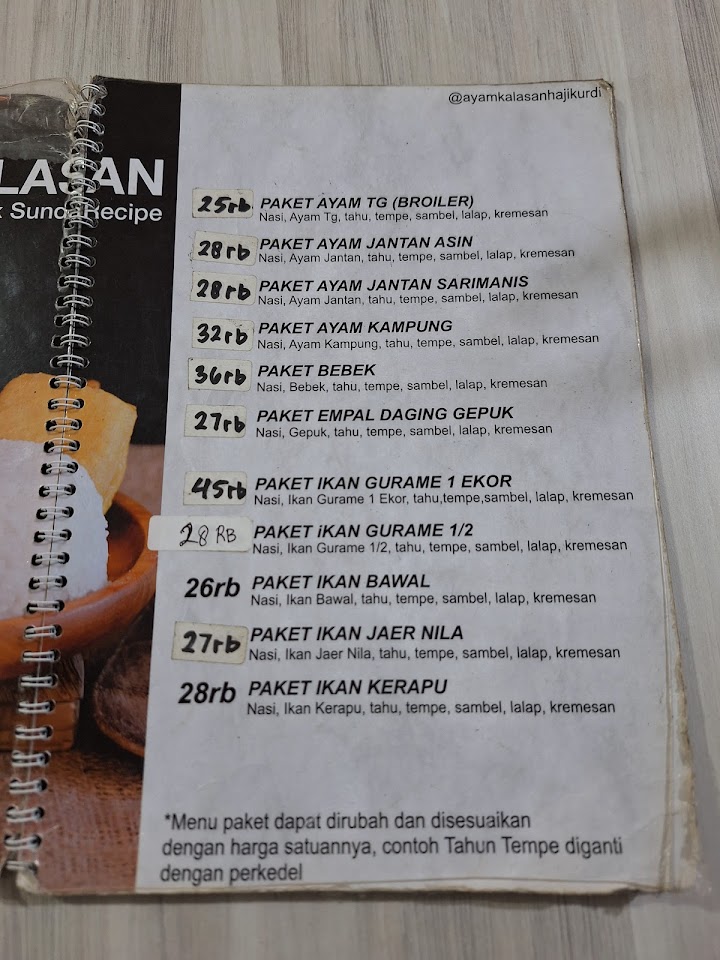 @ayamkalasanhajikurdi
LASAN
Recipe
25rb PAKET AYAM TG (BROILER)
Nasi, Ayam Tg, tahu, tempe, sambel, lalap, kremesan
28rb PAKET AYAM JANTAN ASIN
Nasi, Ayam Jantan, tahu, tempe, sambel, lalap, kremesan
28rb PAKET AYAM JANTAN SARIMANIS
Nasi, Ayam Jantan, tahu, tempe, sambel, lalap, kremesan
32rb PAKET AYAM KAMPUNG
Nasi, Ayam Kampung, tahu, tempe, sambel, lalap, kremesan
36rb PAKET BEBEK
Nasi, Bebek, tahu, tempe, sambel, lalap, kremesan
27rb PAKET EMPAL DAGING GEPUK
Nasi, Gepuk, tahu, tempe, sambel, lalap, kremesan
45rb PAKET IKAN GURAME 1 EKOR
Nasi, Ikan Gurame 1 Ekor, tahu,tempe,sambel, lalap, kremesan
28 RB PAKET iKAN GURAME 1/2
Nasi, Ikan Gurame 1/2, tahu, tempe, sambel, lalap, kremesan
26rb PAKET IKAN BAWAL
Nasi, Ikan Bawal, tahu, tempe, sambel, lalap, kremesan
27rb PAKET IKAN JAER NILA
Nasi, Ikan Jaer Nila, tahu, tempe, sambel, lalap, kremesan
28rb PAKET IKAN KERAPU
Nasi, Ikan Kerapu, tahu, tempe, sambel, lalap, kremesan
*Menu paket dapat dirubah dan disesuaikan
dengan harga satuannya, contoh Tahun Tempe diganti
dengan perkedel